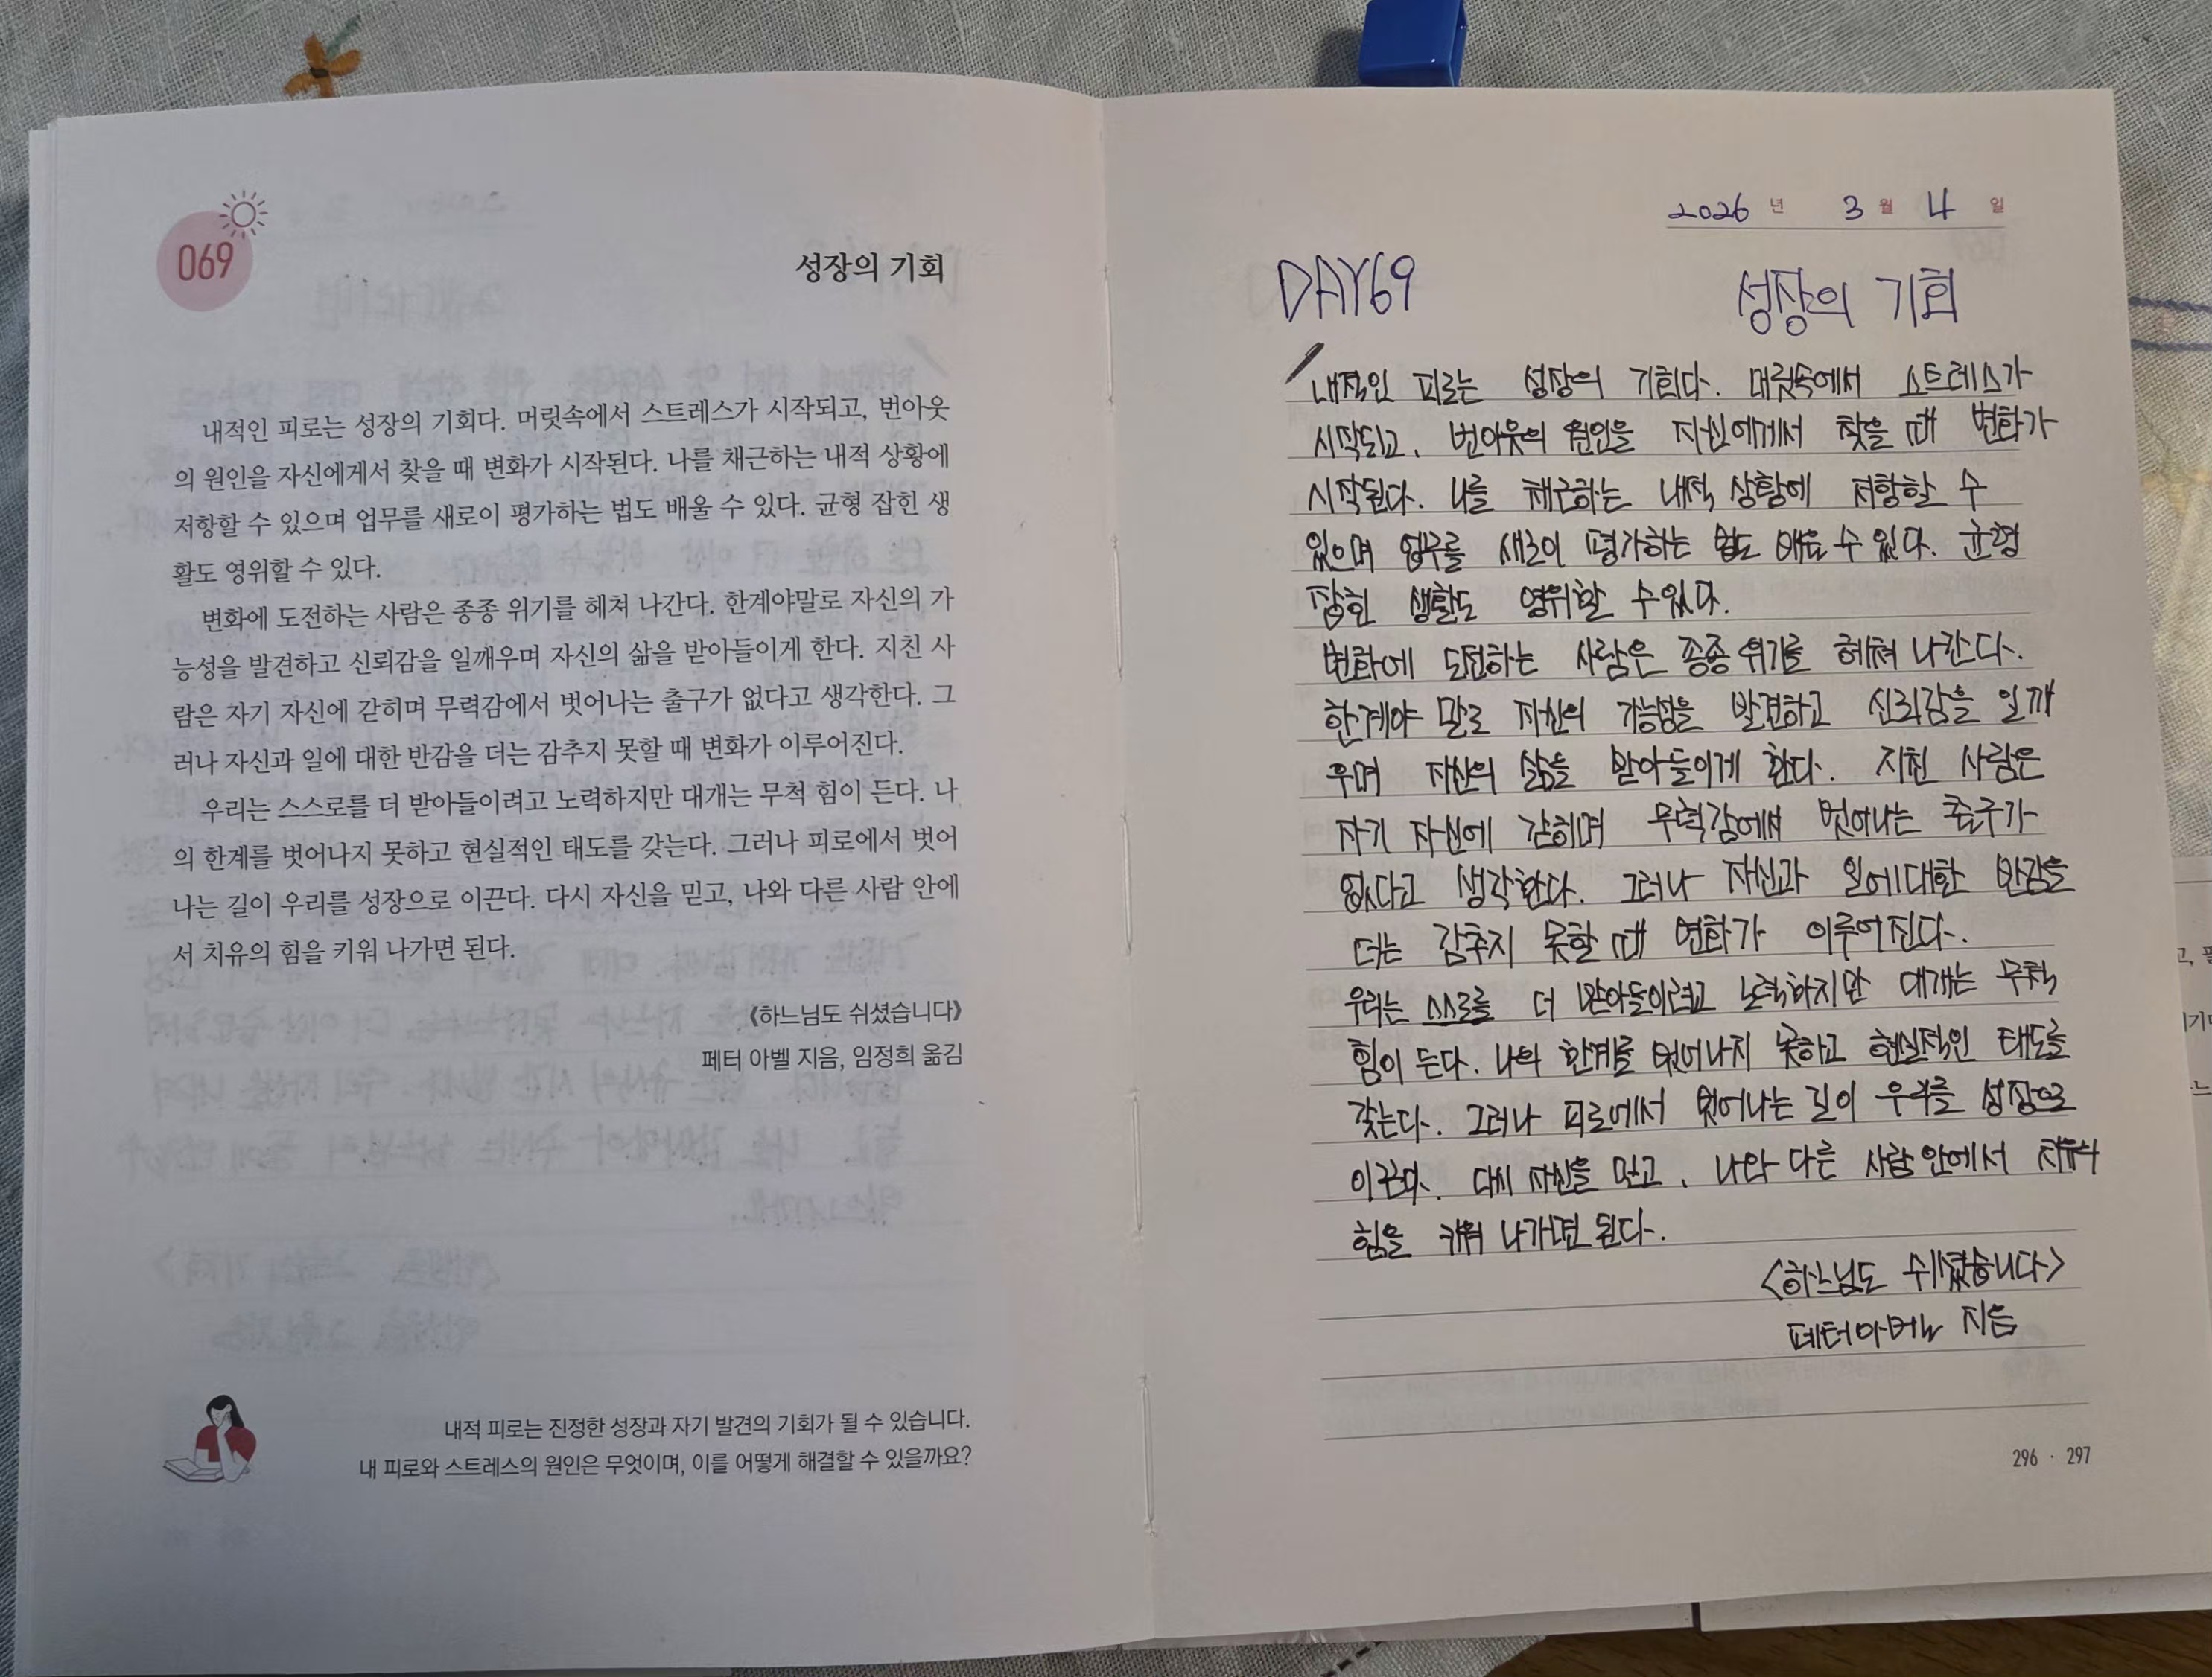 069
성장의 기회
내적인 피로는 성장의 기회다. 머릿속에서 스트레스가 시작되고, 번아웃
의 원인을 자신에게서 찾을 때 변화가 시작된다. 나를 채근하는 내적 상황에
저항할 수 있으며 업무를 새로이 평가하는 법도 배울 수 있다. 균형 잡힌 생
활도 영위할 수 있다.
변화에 도전하는 사람은 종종 위기를 헤쳐 나간다. 한계야말로 자신의 가
능성을 발견하고 신뢰감을 일깨우며 자신의 삶을 받아들이게 한다. 지친 사
람은 자기 자신에 갇히며 무력감에서 벗어나는 출구가 없다고 생각한다. 그
러나 자신과 일에 대한 반감을 더는 감추지 못할 때 변화가 이루어진다.
우리는 스스로를 더 받아들이려고 노력하지만 대개는 무척 힘이 든다. 나
의 한계를 벗어나지 못하고 현실적인 태도를 갖는다. 그러나 피로에서 벗어
나는 길이 우리를 성장으로 이끈다. 다시 자신을 믿고, 나와 다른 사람 안에
서 치유의 힘을 키워 나가면 된다.
《하느님도 쉬셨습니다》
페터 아벨 지음, 임정희 옮김
내적 피로는 진정한 성장과 자기 발견의 기회가 될 수 있습니다.
내 피로와 스트레스의 원인은 무엇이며, 이를 어떻게 해결할 수 있을까요?
2026 년 3 월 4 일
DAY69 성장의 기회
내적인 피로는 성장의 기회다. 머릿속에서 스트레스가
시작되고, 번아웃의 원인을 자신에게서 찾을 때 변화가
시작된다. 나를 채근하는 내적 상황에 저항할 수
있으며 업무를 새로이 평가하는 법도 배울 수 있다. 균형
잡힌 생활도 영위할 수 있다.
변화에 도전하는 사람은 종종 위기를 헤쳐 나간다.
한계야 말로 자신의 가능성을 발견하고 신뢰감을 일깨
우며 자신의 삶을 받아들이게 한다. 지친 사람은
자기 자신에 갇히며 무력감에서 벗어나는 출구가
없다고 생각한다. 그러나 자신과 일에 대한 반감을
더는 감추지 못할 때 변화가 이루어진다.
우리는 스스로를 더 받아들이려고 노력하지만 대개는 무척
힘이 든다. 나의 한계를 벗어나지 못하고 현실적인 태도를
갖는다. 그러나 피로에서 벗어나는 길이 우리를 성장으로
이끈다. 다시 자신을 믿고, 나와 다른 사람 안에서 치유의
힘을 키워 나가면 된다.
<하느님도 쉬셨습니다>
페터아벨 지음
296 · 297